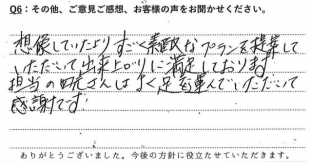 Q6：その他、ご意見ご感想、お客様の声をお聞かせください。
想像していたよりすごく素敵なプランを提案して
いただいて出来上がりに満足しております
担当の さんはよく足を運んでいただいて
感謝です
ありがとうございました。今後の方針に役立たせていただきます。